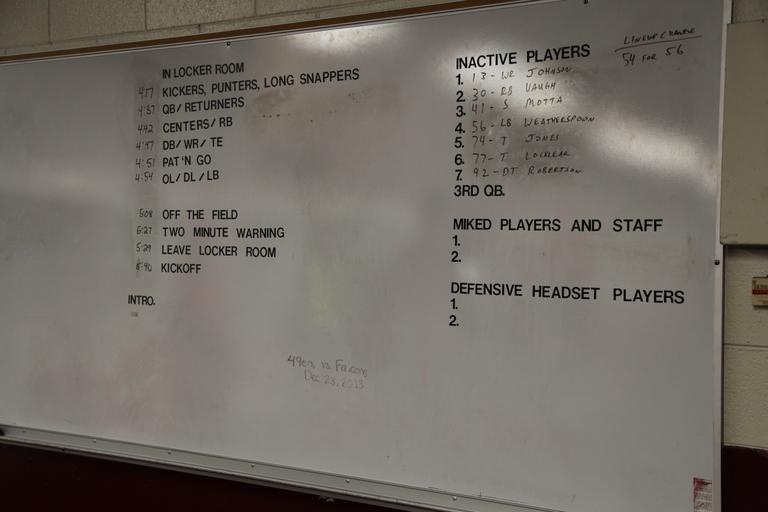 IN LOCKER ROOM
4:17 KICKERS, PUNTERS, LONG SNAPPERS
4:37 QB/ RETURNERS
4:42 CENTERS/ RB
4:47 DB/ WR/ TE
4:51 PAT 'N GO
4:54 OL/ DL/ LB
5:08 OFF THE FIELD
5:27 TWO MINUTE WARNING
5:29 LEAVE LOCKER ROOM
5:40 KICKOFF
INTRO.
49ers vs. Falcons
Dec 23, 2013
INACTIVE PLAYERS
1. 13 - WR JOHNSON
2. 30 - RB VAUGH
3. 41 - S MOTTA
4. 56 - LB WEATHERSPOON
5. 74 - T JONES
6. 77 - T LOCKLEAR
7. 92 - DT ROBERTSON
3RD QB.
LINEUP CHANGE
54 FOR 56
MIKED PLAYERS AND STAFF
1.
2.
DEFENSIVE HEADSET PLAYERS
1.
2.